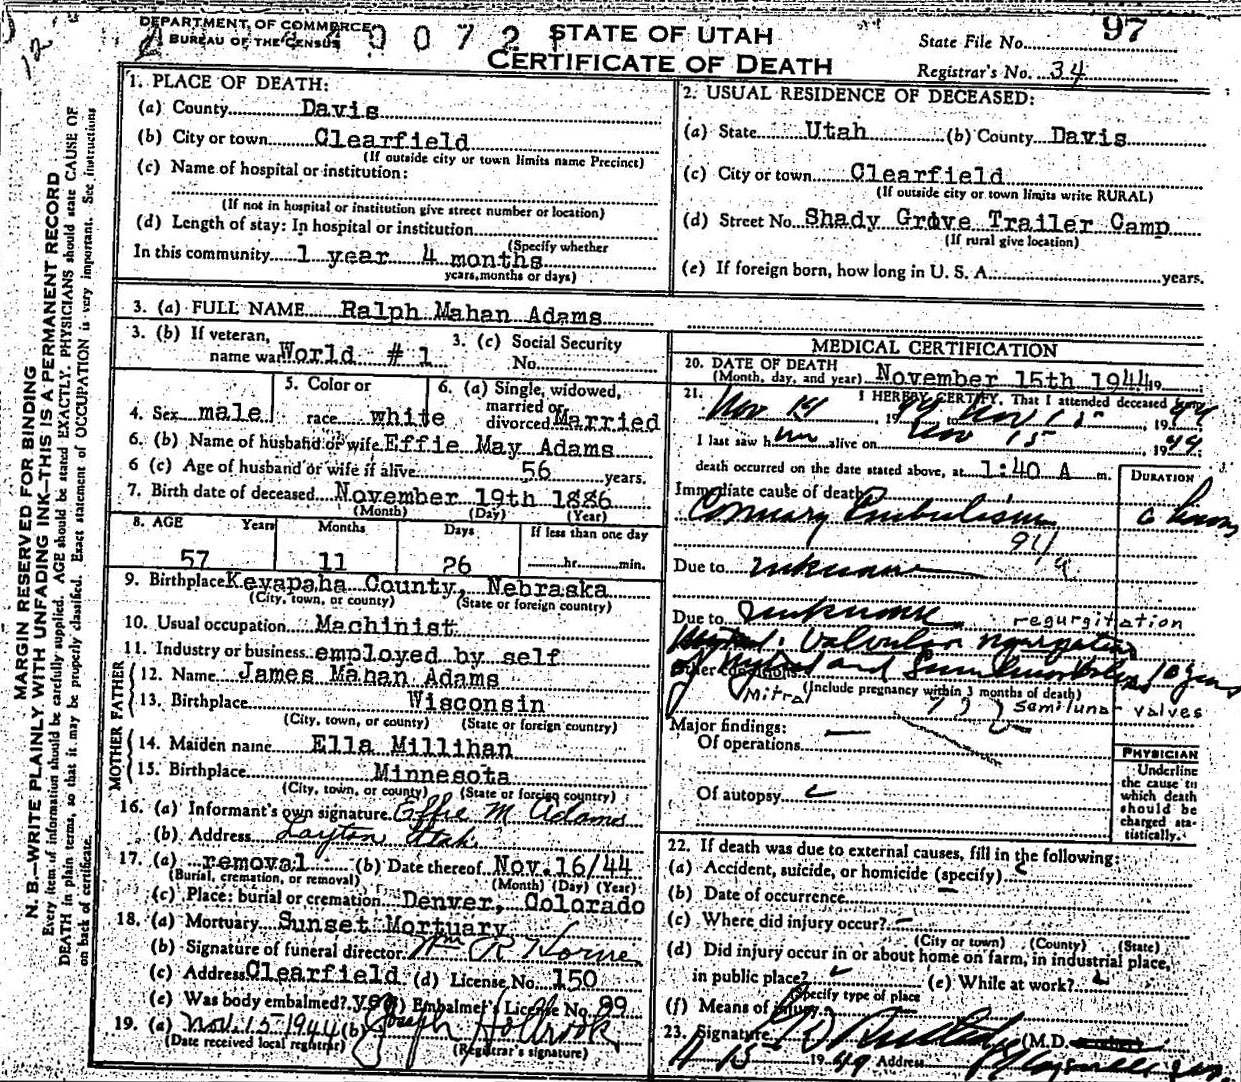 DEPARTMENT OF COMMERCE
BUREAU OF THE CENSUS
0 0 7 2
STATE OF UTAH
CERTIFICATE OF DEATH
97
State File No.
Registrar's No. 34
MARGIN RESERVED FOR BINDING
N. B.—WRITE PLAINLY WITH UNFADING INK—THIS IS A PERMANENT RECORD
Every item of information should be carefully supplied. AGE should be stated EXACTLY. PHYSICIANS should state CAUSE OF
DEATH in plain terms, so that it may be properly classified. Exact statement of OCCUPATION is very important. See instructions
on back of certificate.
1. PLACE OF DEATH:
(a) County Davis
(b) City or town Clearfield
(If outside city or town limits name Precinct)
(c) Name of hospital or institution:
(If not in hospital or institution give street number or location)
(d) Length of stay: In hospital or institution
(Specify whether
In this community 1 year 4 months
years, months or days)
2. USUAL RESIDENCE OF DECEASED:
(a) State Utah (b) County Davis
(c) City or town Clearfield
(If outside city or town limits write RURAL)
(d) Street No. Shady Grove Trailer Camp
(If rural give location)
(e) If foreign born, how long in U. S. A. years.
3. (a) FULL NAME Ralph Mahan Adams
3. (b) If veteran, name war World #1
3. (c) Social Security No.
4. Sex male
5. Color or race white
6. (a) Single, widowed, married or divorced Married
6. (b) Name of husband or wife Effie May Adams
6 (c) Age of husband or wife if alive 56 years.
7. Birth date of deceased November 19th 1886
(Month) (Day) (Year)
8. AGE Years Months Days If less than one day
57 11 26 hr. min.
9. Birthplace Keyapaha County, Nebraska
(City, town, or county) (State or foreign country)
10. Usual occupation Machinist
11. Industry or business employed by self
FATHER
12. Name James Mahan Adams
13. Birthplace Wisconsin
(City, town, or county) (State or foreign country)
MOTHER
14. Maiden name Ella Millihan
15. Birthplace Minnesota
(City, town, or county) (State or foreign country)
16. (a) Informant's own signature Effie M Adams
(b) Address Layton Utah
17. (a) removal (b) Date thereof Nov. 16/44
(Burial, cremation, or removal) (Month) (Day) (Year)
(c) Place: burial or cremation Denver, Colorado
18. (a) Mortuary Sunset Mortuary
(b) Signature of funeral director Wm R Horne
(c) Address Clearfield (d) License No. 150
(e) Was body embalmed? yes (f) Embalmer's License No. 99
19. (a) Nov. 15-1944 (b) Joseph Holbrook
(Date received local registrar) (Registrar's signature)
MEDICAL CERTIFICATION
20. DATE OF DEATH
(Month, day, and year) November 15th 1944 19
21. I HEREBY CERTIFY, That I attended deceased
Nov 1st 1944 to Nov 15, 1944
I last saw him alive on Nov 15, 1944
death occurred on the date stated above, at 1:40 A m.
DURATION
Immediate cause of death
Coronary Embolism 6 hours
94a
Due to unknown
Due to unknown
regurgitation
Valvular
of and 10 years
Other conditions
(Include pregnancy within 3 months of death)
Mitral semilunar valves
Major findings:
Of operations —
Of autopsy
PHYSICIAN
Underline
the cause to
which death
should be
charged sta-
tistically.
22. If death was due to external causes, fill in the following:
(a) Accident, suicide, or homicide (specify)
(b) Date of occurrence
(c) Where did injury occur? —
(City or town) (County) (State)
(d) Did injury occur in or about home on farm, in industrial place,
in public place? (e) While at work?
(Specify type of place
(f) Means of injury
23. Signature (M.D.
11-15 1944 Address Kaysville